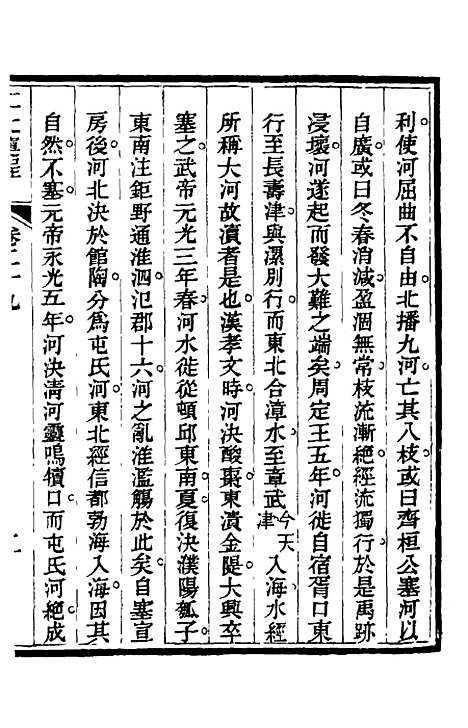 利使河屈曲不自由北播九河亡其八枝或曰齊桓公塞河以
自廣或曰冬春消減盈涸無常枝流漸絕經流獨行於是禹跡
浸壞河遂起而發大難之端矣周定王五年河徙自宿胥口東
行至長壽津與漯別行而東北合漳水至章武今天津入海水經
所稱大河故瀆者是也漢孝文時河決酸棗東潰金隄大興卒
塞之武帝元光三年春河水徙從頓邱東南夏復決濮陽瓠子
東南注鉅野通淮泗氾郡十六河之亂淮濫觴於此矣自塞宣
房後河北決於館陶分為屯氏河東北經信都勃海入海因其
自然不塞元帝永光五年河決清河靈鳴犢口而屯氏河絕成
卷二十九